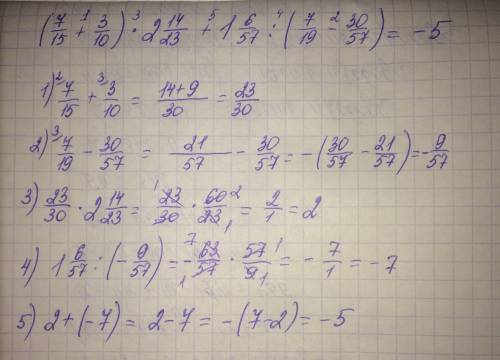 (7/15 + 3/10) · 2 14/23 + 1 6/57 : (7/19 - 30/57) = -5
1) 7/15 + 3/10 = (14+9)/30 = 23/30
2) 7/19 - 30/57 = 21/57 - 30/57 = -(30/57 - 21/57) = -9/57
3) 23/30 · 2 14/23 = 23/30 · 60/23 = 2/1 = 2
4) 1 6/57 : (-9/57) = -63/57 · 57/9 = -7/1 = -7
5) 2 + (-7) = 2-7 = -(7-2) = -5